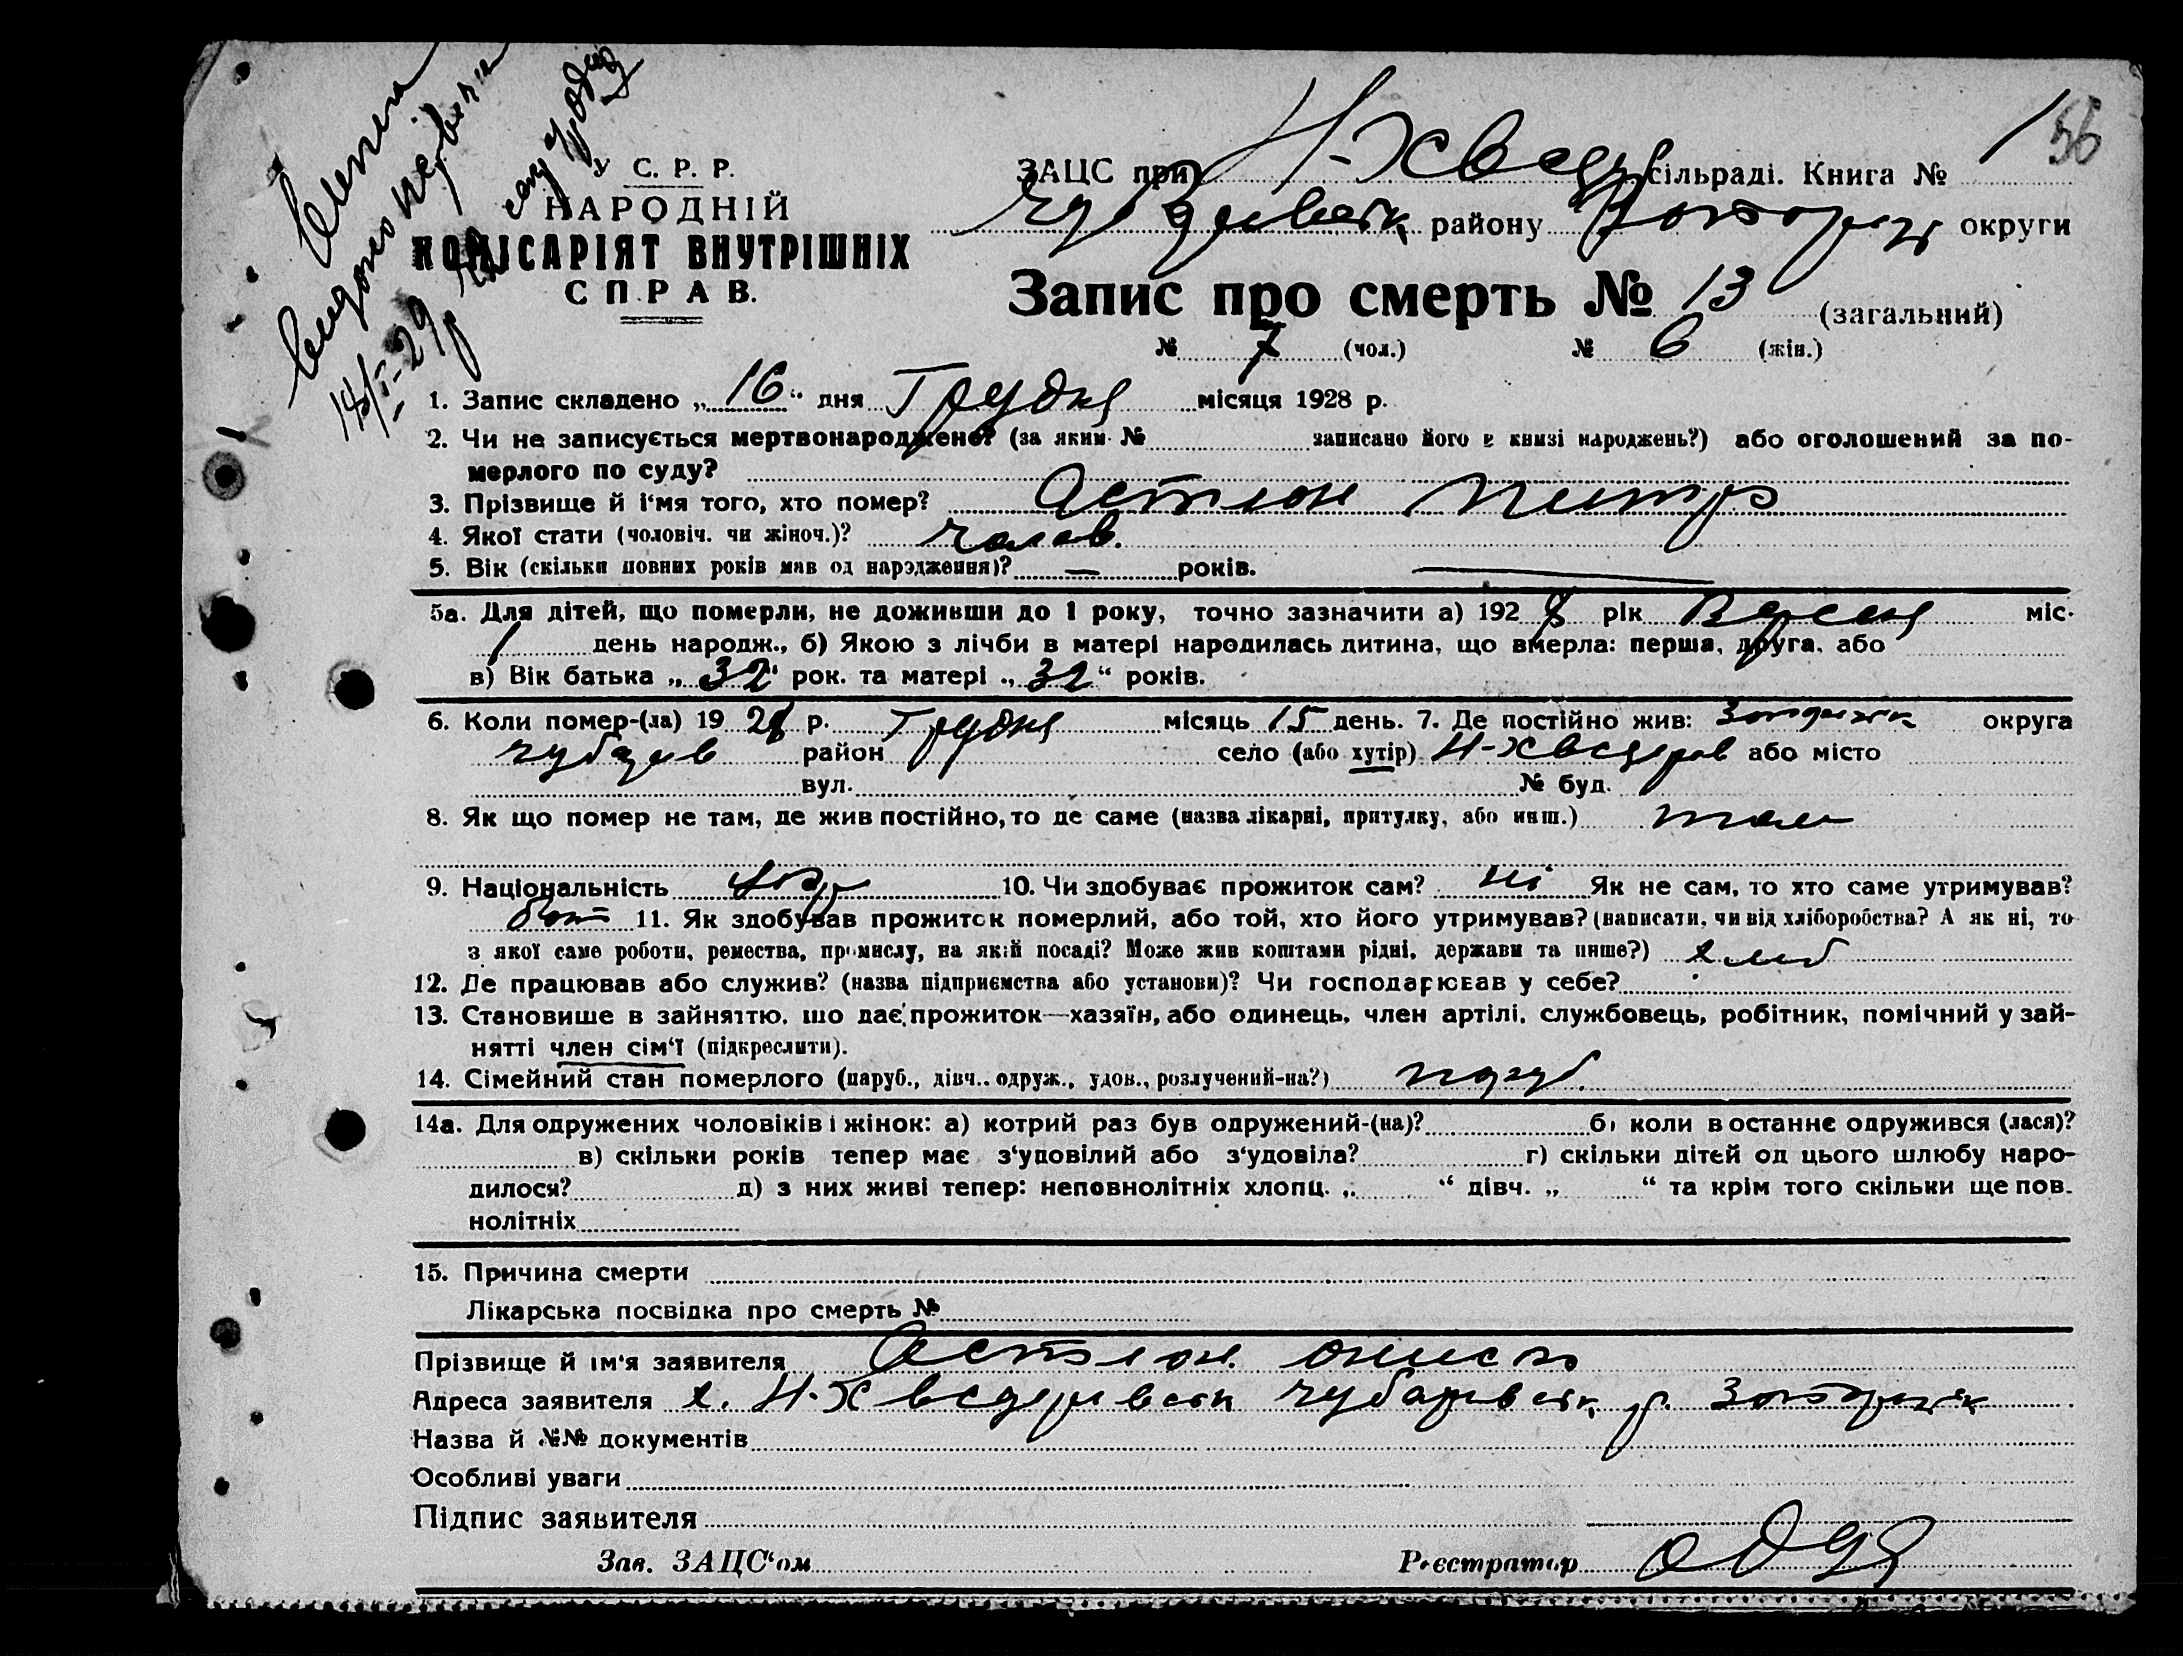 156
У С. Р. Р.
НАРОДНІЙ
КОМІСАРІЯТ ВНУТРІШНІХ
СПРАВ.
ЗАЦС при Н-Хведр сільраді. Книга №
району округи
Запис про смерть № 13 (загальний)
№ 7 (чол.) № 6 (жін.)
1. Запис складено „16“ дня Грудня місяця 1928 р.
2. Чи не записується мертвонароджене? (за яким № записано його в книзі народжень?) або оголошений за по-
мерлого по суду?
3. Прізвище й і‘мя того, хто помер?
4. Якої стати (чоловіч. чи жіноч.)? чолов.
5. Вік (скільки повних років мав од народження)? — років.
5а. Для дітей, що померли, не доживши до 1 року, точно зазначити а) 1928 рік Вересня міс.
1 день народж., б) Якою з лічби в матері народилась дитина, що вмерла: перша, друга, або
в) Вік батька „32“ рок. та матері „32“ років.
6. Коли помер-(ла) 1928 р. Грудня місяць 15 день. 7. Де постійно жив: округа
чубарів район село (або хутір) Н-Хведорів або місто
вул. № буд.
8. Як що помер не там, де жив постійно, то де саме (назва лікарні, притулку, або инш.) там
9. Національність 10. Чи здобуває прожиток сам? ні Як не сам, то хто саме утримував?
бат 11. Як здобував прожиток померлий, або той, хто його утримував? (написати, чи від хліборобства? А як ні, то
з якої саме роботи, ремества, промислу, на якій посаді? Може жив коштами рідні, держави та инше?) хліб
12. Де працював або служив? (назва підприємства або установи)? Чи господарював у себе?
13. Становище в зайняттю, що дає прожиток—хазяїн, або одинець, член артілі, службовець, робітник, помічний у зай-
нятті член сім‘ї (підкреслити).
14. Сімейний стан померлого (паруб., дівч., одруж., удов., розлучений-на?) паруб.
14а. Для одружених чоловіків і жінок: а) котрий раз був одружений-(на)? б) коли в останнє одружився (лася)?
в) скільки років тепер має з‘удовілий або з‘удовіла? г) скільки дітей од цього шлюбу наро-
дилося? д) з них живі тепер: неповнолітніх хлопц. „ “ дівч. „ “ та крім того скільки ще пов.
нолітніх
15. Причина смерти
Лікарська посвідка про смерть №
Прізвище й ім‘я заявителя
Адреса заявителя х. Н-Хведорівськ чубарівськ р.
Назва й №№ документів
Особливі уваги
Підпис заявителя
Зав. ЗАЦС‘ом Реєстратор